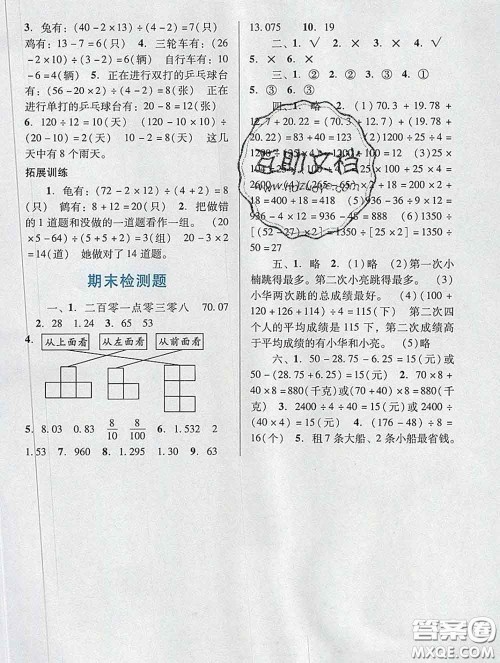 3. 兔有：(40-2×13)÷(4-2)=7(只)
鸡有：13-7=6(只)　4. 三轮车有：(26
-2×10)÷(3-2)=6(辆)　自行车有：10
-6=4(辆)　5. 正在进行双打的乒乓球台
有：(64-20×2)÷(4-2)=12(张)　正在
进行单打的乒乓球台有：20-8=12(张)
6. 120÷12=10(天)　(120-10×10)÷
(20-10)=2(天)　10-2=8(天)　这几
天中有8个雨天。
拓展训练
1. 龟有：(72-2×12)÷(4+2)=8(只)
鹤有：8+12=20(只)　2. 把做错
的1道题和没做的一道题看作一组。
(20×5-64)÷(5+5+2)=3(组)　20-3×2
=14(道)　她做对了14道题。
期末检测题
一、1. 二百零一点零三零八　70.07
2. 28　1.24　3. 53
4. 从上面看　从左面看　从前面看
5. 8.03　0.83　8/10　8/100　6. 1.532　2
1.53　7. 960　8. 1.295　1.30　9. 63
13.075　10. 19
二、1. √　2. ×　3. √　4. ×
5. ×　6. ×
三、1. ②　2. ②　3. ③　4. ③
5. ③　6. ③
四、1. 略　2. (1)70.3+19.78+
12.7+20.22=(70.3+12.7)+(19.78+
20.22)=83+40=123
1200÷25÷4=
1200÷(25×4)=12
(3)4×26×25=4×25×26=
2600　(4)(265-65)×2+18=200
×2+18=400+18=418
936÷[(45-33)×2]=
936÷[12×2]=936÷24=39　(6)1350÷
[(52-27)×2]=1350÷[25×2]=1350÷
50=27
五、1. 略　2. (1)略　(2)第一次小
楠跳得最多。第二次小亮跳得最多。　(3)
小华两次跳的总成绩最好。　(4)(100+
120+126+114)÷4=115(下)　第二次四
个人的平均成绩是115下，第二次的平均成
绩高于第一次的有小华和小亮。　(5)略
六、1. 50-28.75-6.25=15(元)或
50-(28.75+6.25)=15(元)　2. (70-4)
×8=880(千克)或(70×8+40×8=880(千
克)　3. 2400÷4÷40=15(元)或2400÷
(40×4)=15(元)　4. (176-48)÷8=
16(个)　5. 租7条大船、2条小船最省钱。
互助文档
答案圈
MXQE.COM